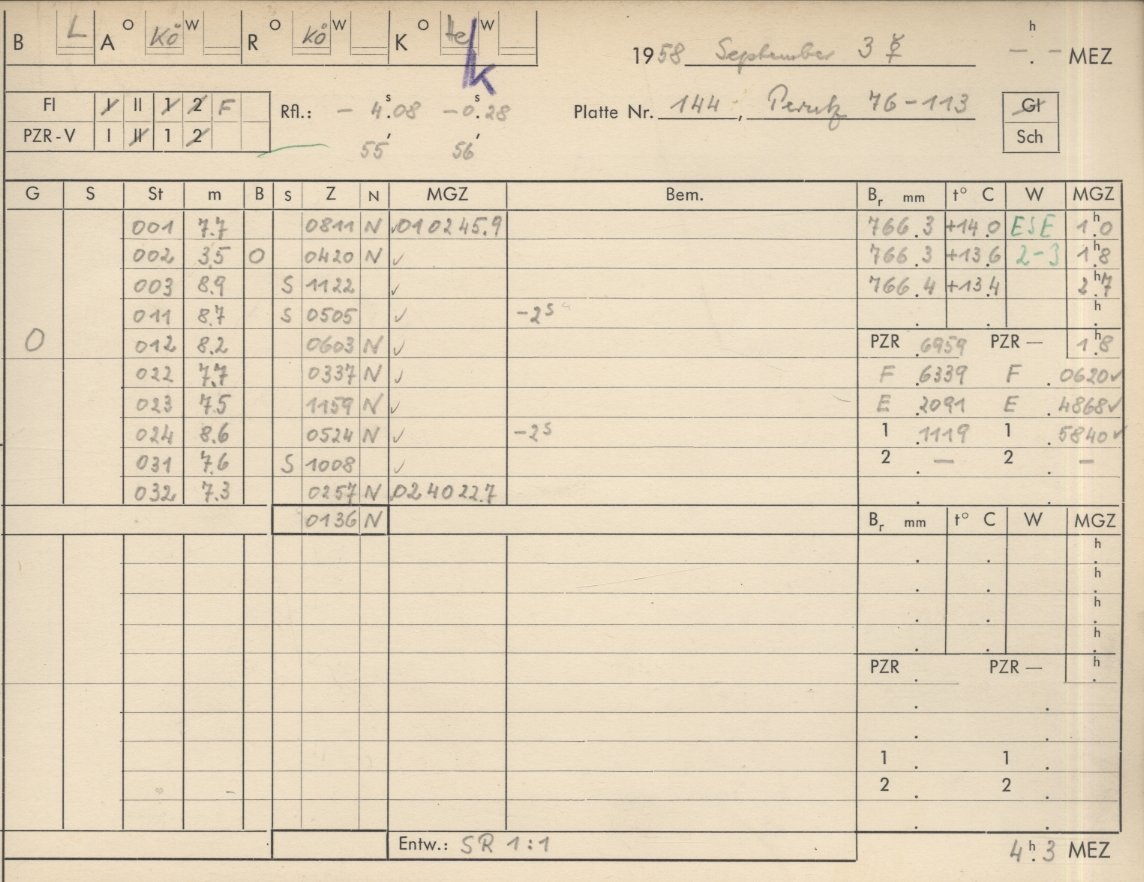 B L A O Kö W R O Kö W K O He W
k
1958 September 3 ☿ –h.– MEZ
Fl I II 1 2 F Rfl.: – 4s.08 –0s.28 Platte Nr. 144, Perutz 76–113 Gl
PZR-V I II 1 2 55′ 56′ Sch
G S St m B S Z N MGZ Bem. Br mm t° C W MGZ
001 7.7 0811 N ✓010245.9 766.3 +14.0 ESE 1h.0
002 3.5 O 0420 N ✓ 766.3 +13.6 2–3 1h.8
003 8.9 S 1122 ✓ 766.4 +13.4 2h.7
011 8.7 S 0505 ✓ –2s h.
O 012 8.2 0603 N ✓ PZR .6959 PZR — 1h.8
022 7.7 0337 N ✓ F .6339 F .0620✓
023 7.5 1159 N ✓ E .2091 E .4868✓
024 8.6 0524 N ✓ –2s 1 .1119 1 .5840✓
031 7.6 S 1008 ✓ 2 . – 2 . –
032 7.3 0257 N 024022.7
0136 N Br mm t° C W MGZ
h
h
h
h
PZR . PZR — h
1 . 1 .
2 . 2 .
Entw.: SR 1:1 4h.3 MEZ